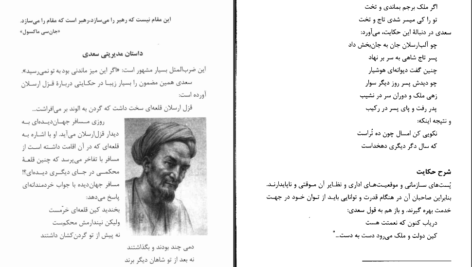 این مقام نیست که رهبر را می‌سازد،رهبر است که مقام را می‌سازد.
«جان‌سی ماکسول»
داستان مدیریتی سعدی
این ضرب‌المثل بسیار مشهور است: «اگر این میز ماندنی بود به تو نمی‌رسید».
سعدی همین مضمون را بسیار زیبا در حکایتی دربارهٔ قزل ارسلان
آورده است:
قزل ارسلان قلعه‌ای سخت داشت که گردن به الوند بر می‌افراشت..
روزی مسافر جهان‌دیده‌ای به
دیدار قزل‌ارسلان می‌آید. او با اشاره به
قلعه‌ای که در آن اقامت داشته است از
مسافر با تفاخر می‌پرسد که چنین قلعهٔ
محکمی در جای دیگری دیده‌ای؟!
مسافر جهان‌دیده با جواب خردمندانه‌ای
پاسخ می‌دهد:
بخندید کین قلعه‌ای خرّمست
ولیکن نپندارمش محکمست
نه پیش از تو گردن‌کشان داشتند
دمی چند بودند و بگذاشتند
نه بعد از تو شاهان دیگر برند
اگر ملک برجم بماندی و تخت
تو را کی میسر شدی تاج و تخت
سعدی در دنبالهٔ این حکایت، می‌آورد:
چو آلب‌ارسلان جان به جان‌بخش داد
پسر تاج شاهی به سر بر نهاد
چنین گفت دیوانه‌ای هوشیار
چو دیدش پسر روز دیگر سوار
زهی ملک و دوران سر در نشیب
پدر رفت و پای پسر در رکیب
و نتیجه اینکه:
نکویی کن امسال چون ده تُراست
که سال دگر دیگری دهخداست
شرح حکایت
پُست‌های سازمانی و موقعیت‌های اداری و نظایر آن موقتی و ناپایدارند.
بنابراین صاحبان آن در هنگام قدرت و توانایی باید از توان خود در جهت
خدمت بهره گیرند. و باز هم به قول سعدی:
دریاب کنون که نعمتت هست
کین دولت و ملک می‌رود دست به دست..